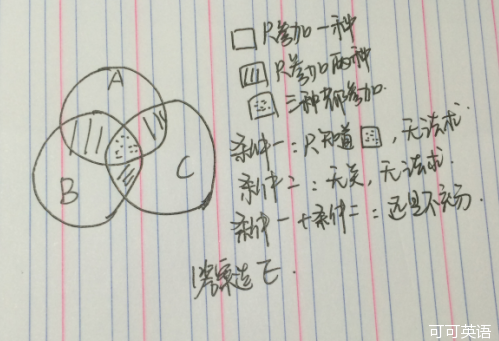 A
B
C
只参加一种
只参加两种
三种都参加.
条件一：只知道，无法求.
条件二：无关，无法求.
条件一+条件二：还是不充分.
答案选E.
可可英语